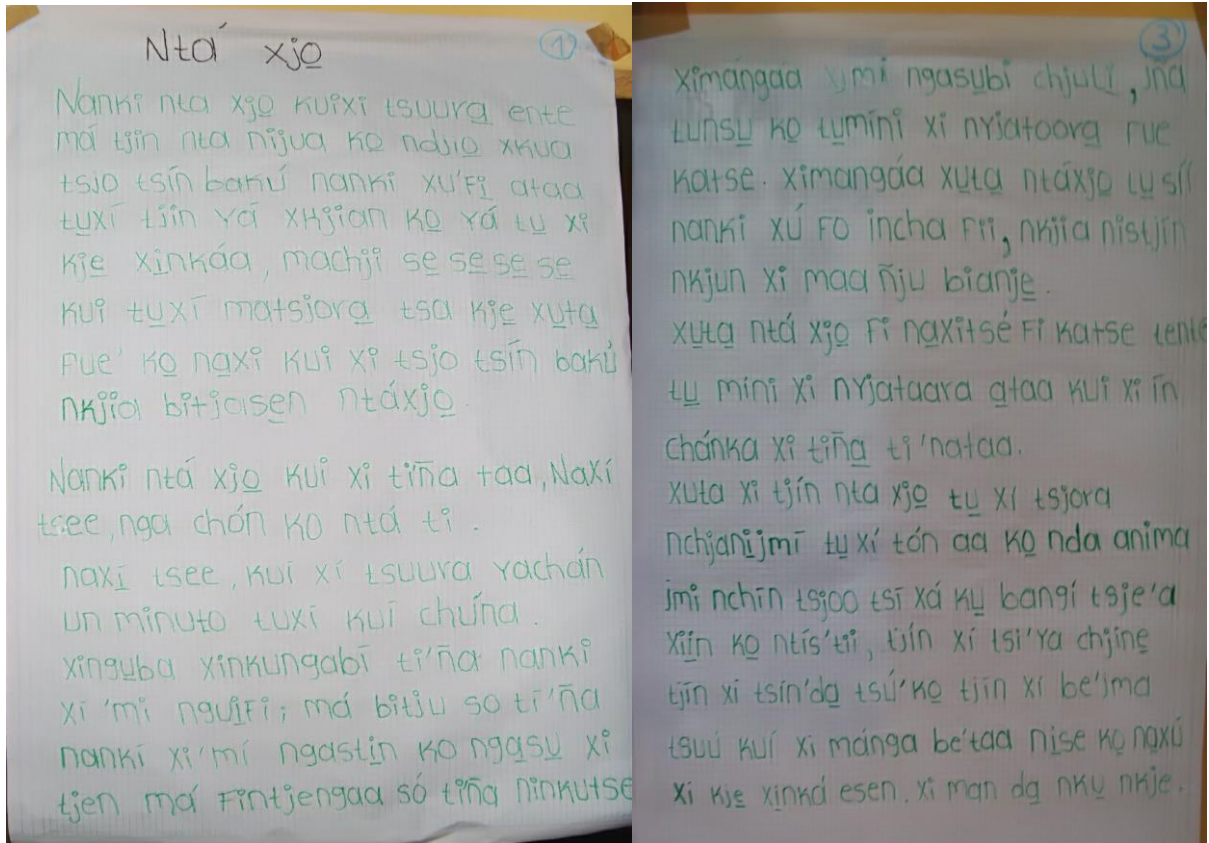 Ntá xjo̱
1
Nanki nta xjo̱ kuixi tsuura̱ ente
má tjin nta nijua ko̱ ndjio̱ xkua
tsjo tsín bakú nanki xu'fi̱ ataa
tu̱xí tjín yá xkjian ko̱ yá tu̱ xi
kje̱ xi̱nkáa, machji se̱ se̱ se̱ se̱
kui tu̱xí matsjora̱ tsa kje̱ xu̱ta̱
fue' ko̱ na̱xi kui xi tsjo tsín bakú
nkjia bitjo̱isen ntáxjo̱.
Nanki ntá xjo̱ kui xi ti'ña taa, Naxí
tsee, nga chón ko ntá ti.
naxi̱ tsee, kui xí tsuura yachán
un minuto tuxí kuí chu'na.
xingu̱ba xinkungabí ti'ña nanki
xi 'mi ngui̱fi; má bitju so ti'ña
nanki xi'mí ngasti̱n ko nga̱su̱ xi
tjen má fintjengaa só tiña̱ ninkutse
3
ximángáa xi̱mi ngasu̱bi chjuu̱, jña
tu̱nsu̱ ko̱ tu̱míní xi nyjatoora̱ fue
katse. ximangáa xu̱ta̱ ntáxjo̱ tu̱ síí
nanki xú fo incha fii, nkjia nistjín
nkjun xi maa ñju bianje̱.
xu̱ta̱ ntá xjo̱ fi na̱xitsé fi katse tente
tu̱ mini xi nyjataara a̱taa kuí xi ín
chánka xi tiña̱ ti'nataa.
xuta xi tjín nta xjo̱ tu̱ xí tsjora
nchjani̱jmī tu̱ xí tón aa ko̱ nda anima
jmi nchín tsjoo tsī xá ku̱ bangí tsje'a
xii̱n ko̱ ntís'tii, tjín xí tsi'ya chjine̱
tjín xí tsín'da̱ tsú'ko̱ tjín xí be'jma
tsuú kuí xi mánga be'taa ni̱se ko̱ na̱xú
xi kje̱ xi̱nká esen. xi man da̱ nku̱ nkje.